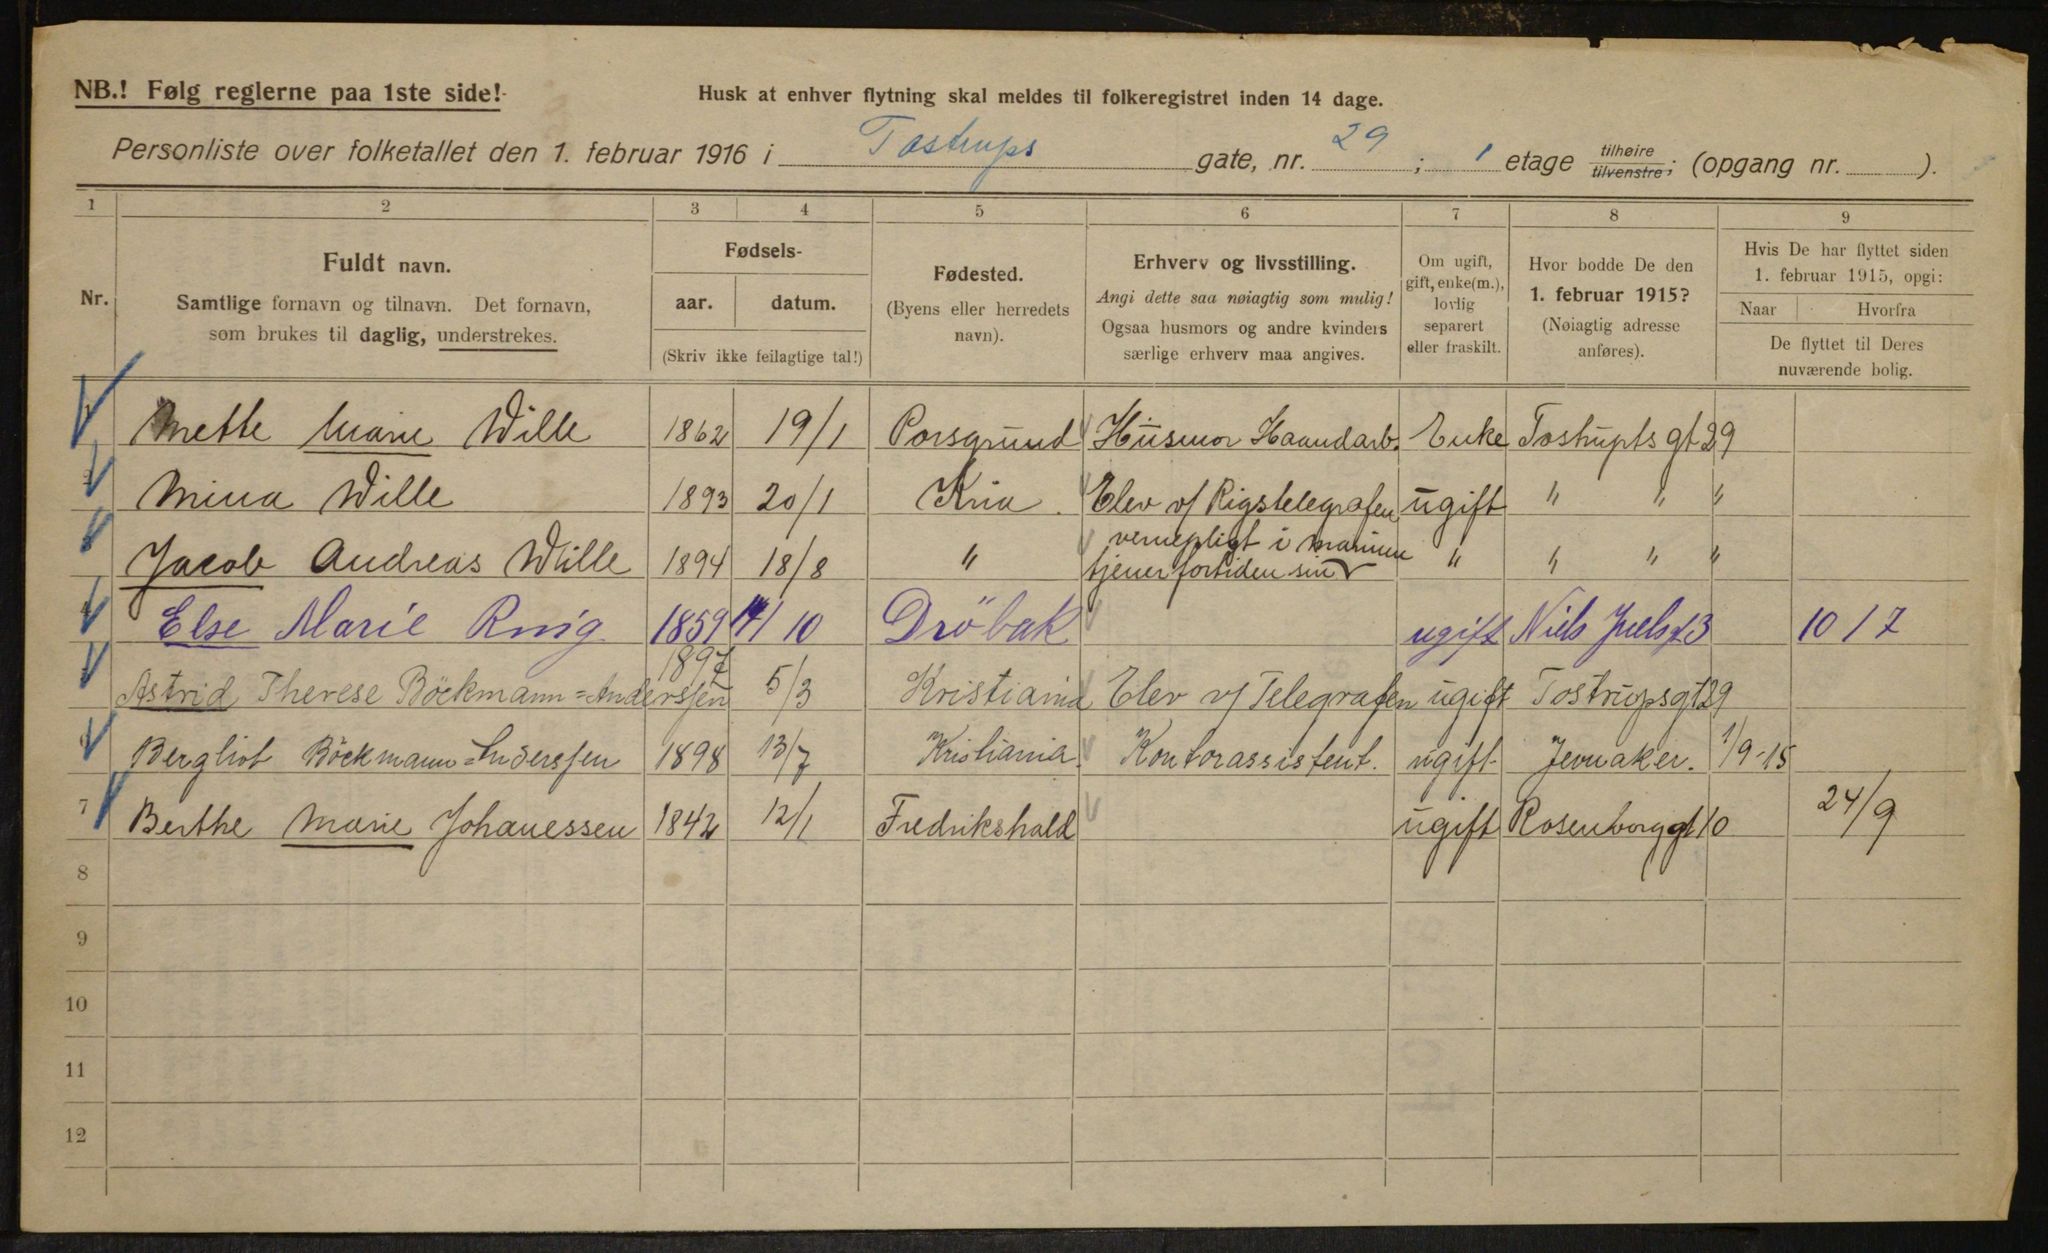 NB.! Følg reglerne paa 1ste side!
Husk at enhver flytning skal meldes til folkeregistret inden 14 dage.
Personliste over folketallet den 1. februar 1916 i Tostrups gate, nr. 29 ; 1 etage tilhøire / tilvenstre; (opgang nr. ).
1 2 3 4 5 6 7 8 9
Nr.
Fuldt navn.
Samtlige fornavn og tilnavn. Det fornavn,
som brukes til daglig, understrekes.
Fødsels-
aar. datum.
(Skriv ikke feilagtige tal!)
Fødested.
(Byens eller herredets
navn).
Erhverv og livsstilling.
Angi dette saa nøiagtig som mulig!
Ogsaa husmors og andre kvinders
særlige erhverv maa angives.
Om ugift,
gift, enke(m.),
lovlig
separert
eller fraskilt.
Hvor bodde De den
1. februar 1915?
(Nøiagtig adresse
anføres).
Hvis De har flyttet siden
1. februar 1915, opgi:
Naar Hvorfra
De flyttet til Deres
nuværende bolig.
1 Mette Marie Wille 1862 19/1 Porsgrund Husmor Haandarb. Enke Tostrupts gt 29
2 Mina Wille 1893 20/1 Kria. Elev v/ Rigstelegrafen ugift " " "
3 Jacob Andreas Wille 1894 18/8 " vernepligt i marinen " " " "
tjener fortiden sin
4 Else Marie 1859 14/10 Dröbak ugift Niels Juelsgt 3 10/7
5 Astrid Therese Böckmann=Anderssen 1897 5/3 Kristiania Elev v/ Telegrafen ugift Tostrupsgt 29
6 Bergliot Böckmann=Anderssen 1898 13/7 Kristiania. Kontorassistent. ugift. Jevnaker. 1/9-15
7 Berthe Marie Johanessen 1842 12/1 Fredrikshald ugift Rosenborggt 10 24/9
8
9
10
11
12